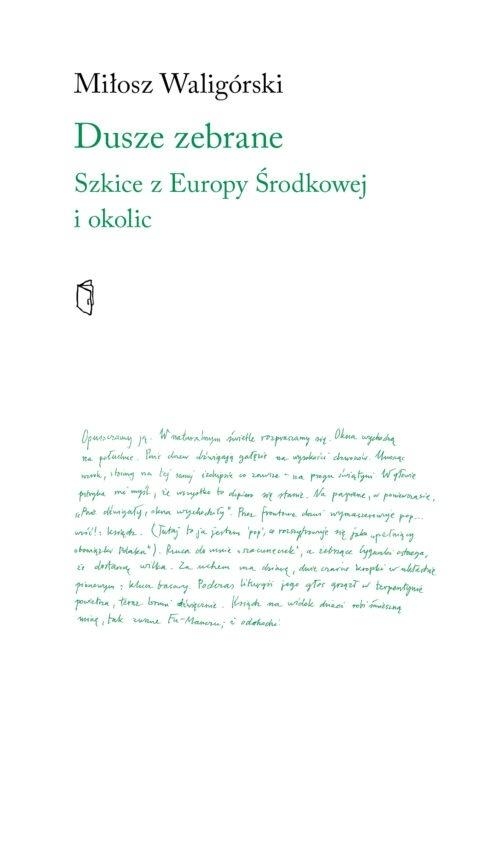 Miłosz Waligórski
Dusze zebrane
Szkice z Europy Środkowej
i okolic
Opuszczamy ją. W naturalnym świetle rozpraszamy się. Okna wychodzą
na południe. Pnie drzew dźwigają gałęzie na wysokości dzwonów.
wzrok, stoimy na tej samej co zawsze – na progu świątyni W głowie
mi myśl, że wszystko to dopiero się stanie. Na papierze, w
„Pnie dźwigały, okna wychodziły". Przez frontowe drzwi wymaszerowuje pop...
wróć!: ksiądz. (Tutaj to ja jestem 'pop', co rozszyfrowuje się jako „pełniący
obowiązki Polaka"). Rzuca do mnie „szacuneczek", a żebrzące Cyganki ostrzega,
że dostaną wilka. Za uchem ma dziwną, dwie czarne kropki w układzie
pionowym: klucz basowy. Podczas liturgii jego głos grzązł w
powietrzu, teraz brzmi dźwięcznie. Ksiądz na widok dzieci robi śmieszną
minę, tak zwane Fu-Manczu, i odchodzi.